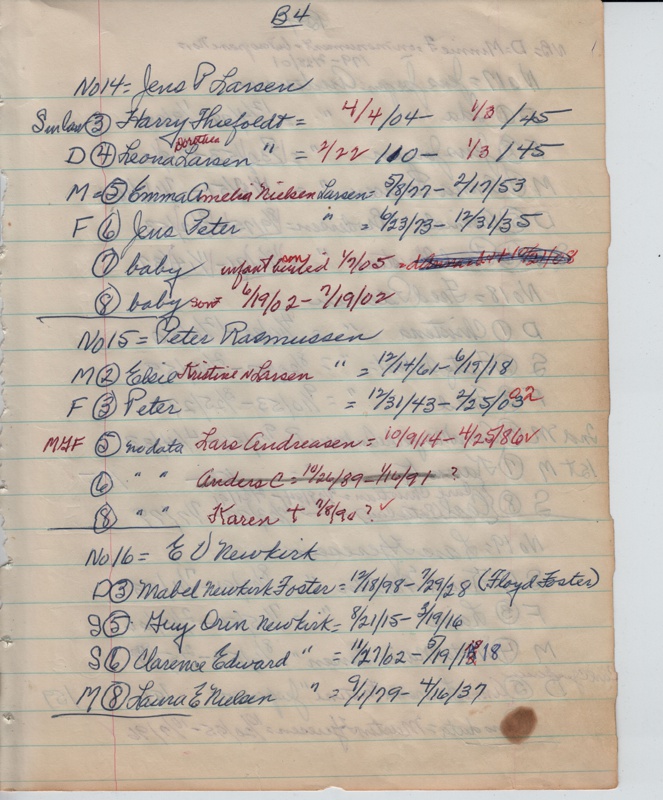 B4
No 14 = Jens P Larsen
Sin law ③ Harry Thiefoldt = 4/4/04 - 1/3/45
Dorothea
D ④ Leona Larsen " = 2/22/10 - 1/3/45
M = ⑤ Emma Amelia Nielsen Larsen = 5/8/77 - 2/17/53
F ⑥ Jens Peter " = 6/23/73 - 12/31/35
son
⑦ baby infant buried 1/7/05 =
⑧ baby son 6/19/02 - 7/19/02
No 15 = Peter Rasmussen
M ② Elsie Kristine N Larsen " = 12/14/61 - 6/19/18
F ③ Peter = 12/31/43 - 2/25/03 02
MGF ⑤ no data Lars Andreasen = 10/9/14 - 4/25/86 ✓
⑥ " " Anders C = 10/26/89 - 1/16/91 ?
⑧ " " Karen + 7/8/90 ? ✓
No 16 = E V Newkirk
D ③ Mabel Newkirk Foster = 12/18/98 - 7/29/28 (Floyd Foster)
S ⑤ Guy Orin Newkirk = 8/21/15 - 3/19/16
S ⑥ Clarence Edward " = 11/27/02 - 5/19/18 18
M ⑧ Laura E Nielsen " = 9/1/79 - 4/16/37